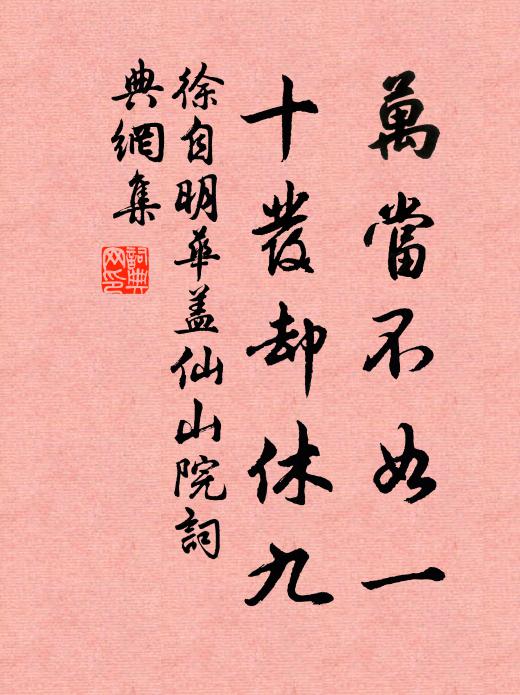 萬當不如一
十發却休九
徐自明華蓋仙山院詞
典網集
詞典
网印